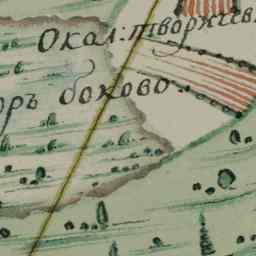 Окал: творичев
оръ боково